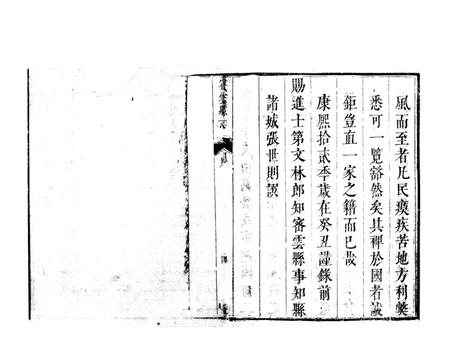 風而至者凡民瘼疾苦地方利獘
悉可一覧豁然矣其裨於國者誠
鉅豈直一家之籍而已哉
康熙拾貳季歲在癸丑謹錄前
賜進士第文林郎知密雲縣事知縣
諸城張世則譔